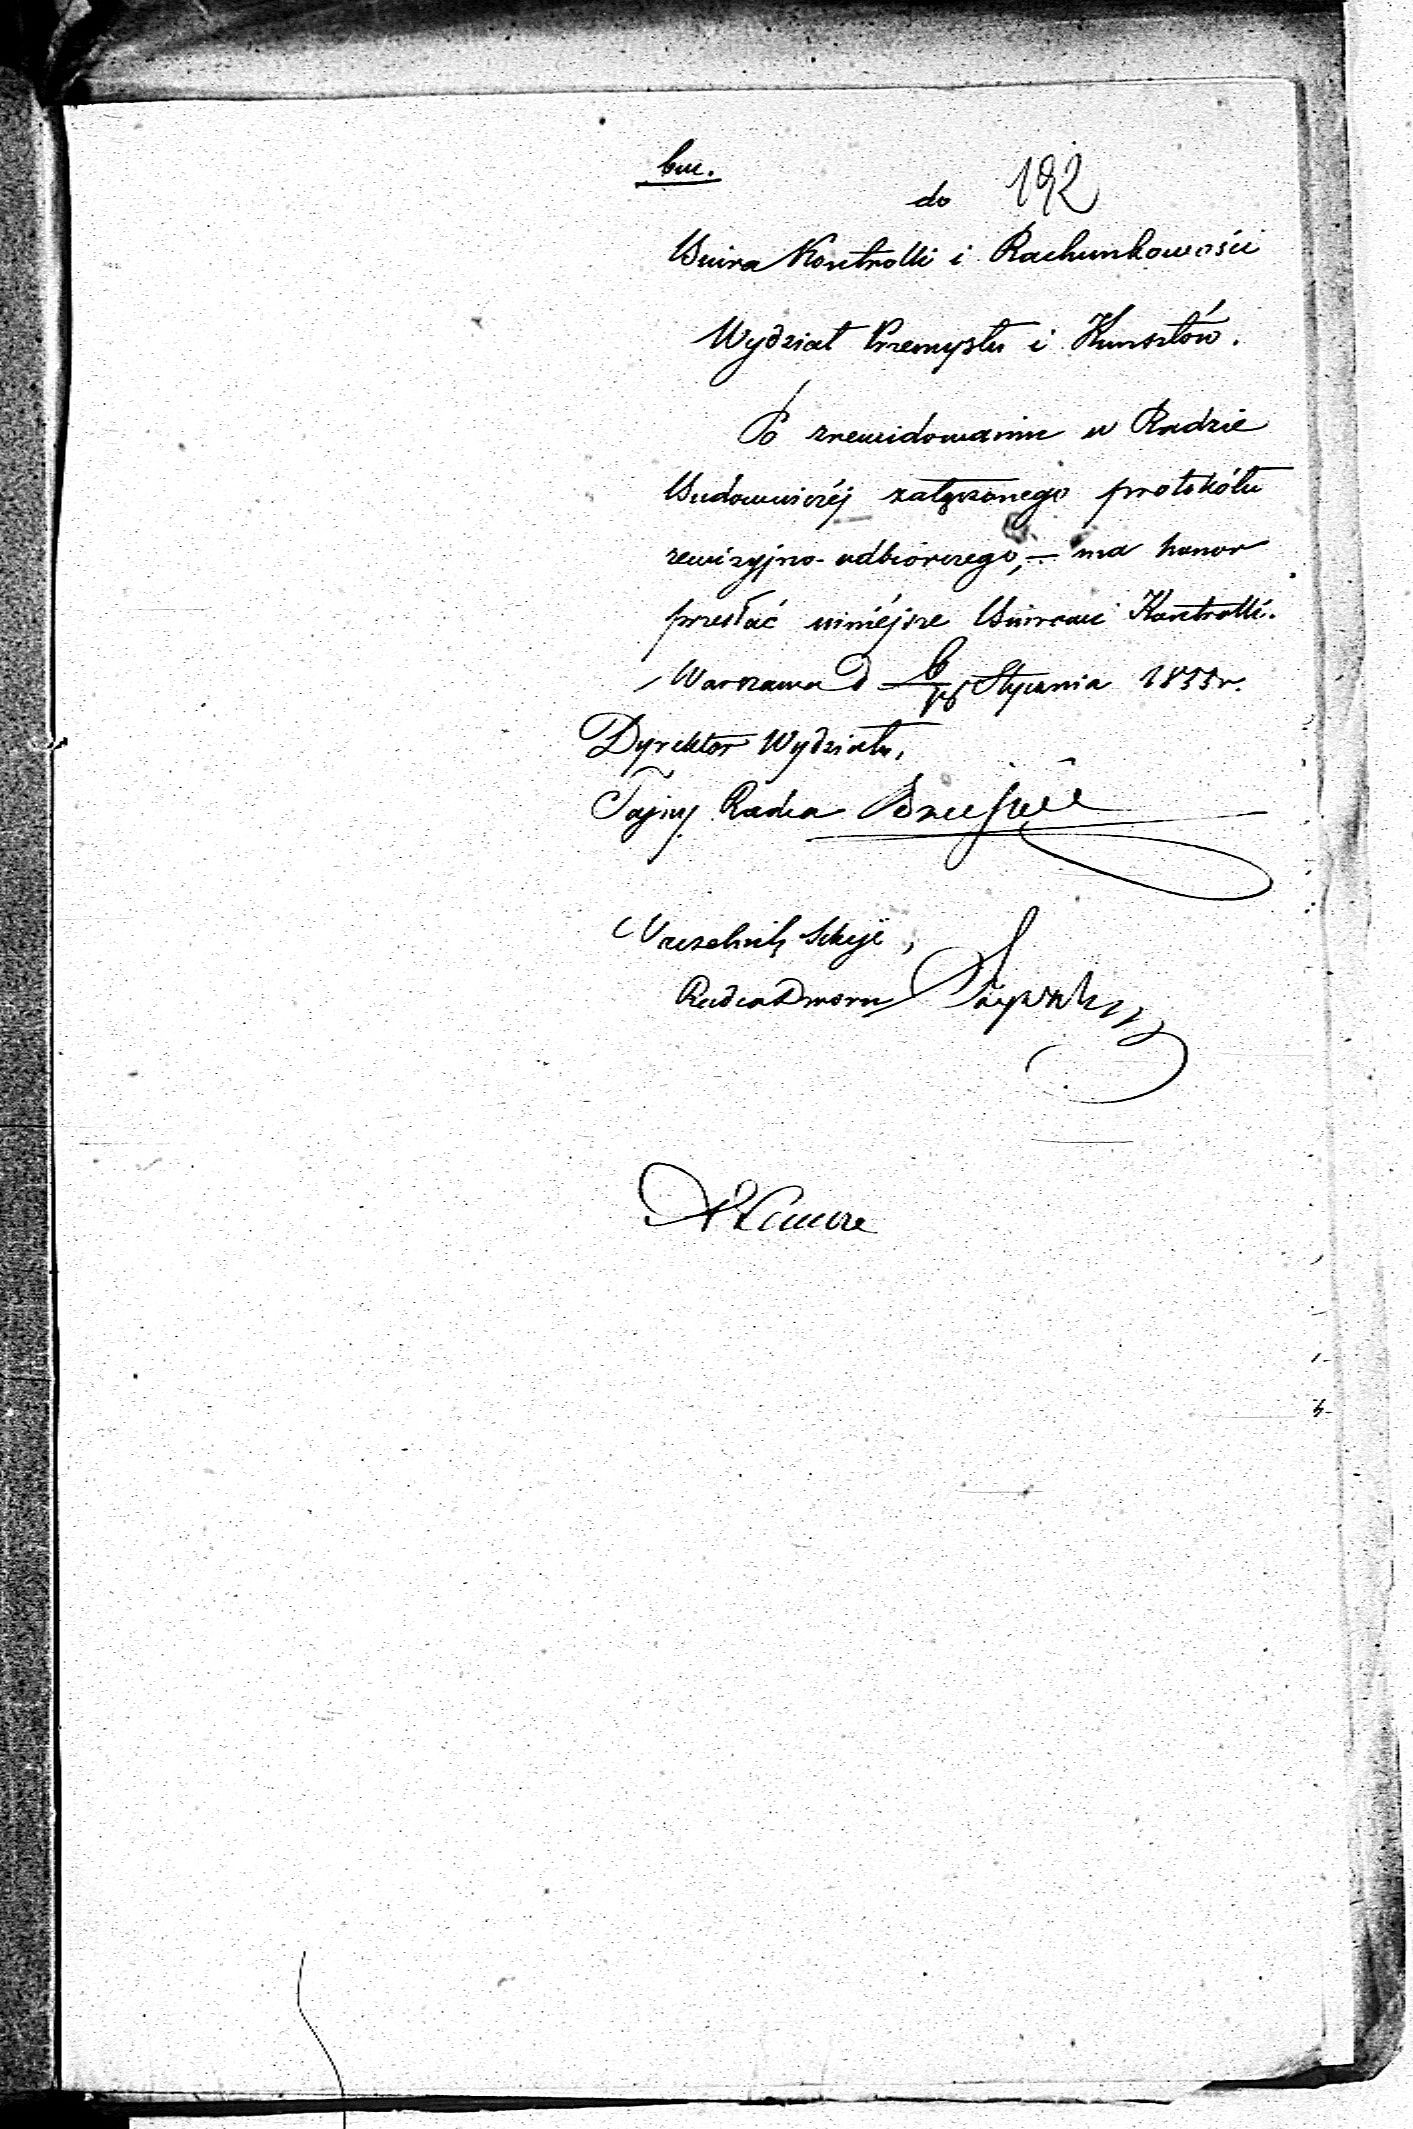 bm.
do 192
Biura Kontrolli i Rachunkowości
Wydział Przemysłu i Kunsztów.
Po zrewidowaniu w Radzie
Budowniczéj załączonego protokółu
rewizyjno-odbiorczego, — ma honor
przesłać niniéjsze Biurowi Kontrolli.
Warszawa d 6/18 Stycznia 1855 r.
Dyrektor Wydziału,
Tajny Radca
Naczelnik Sekcji,
Radca Dworu